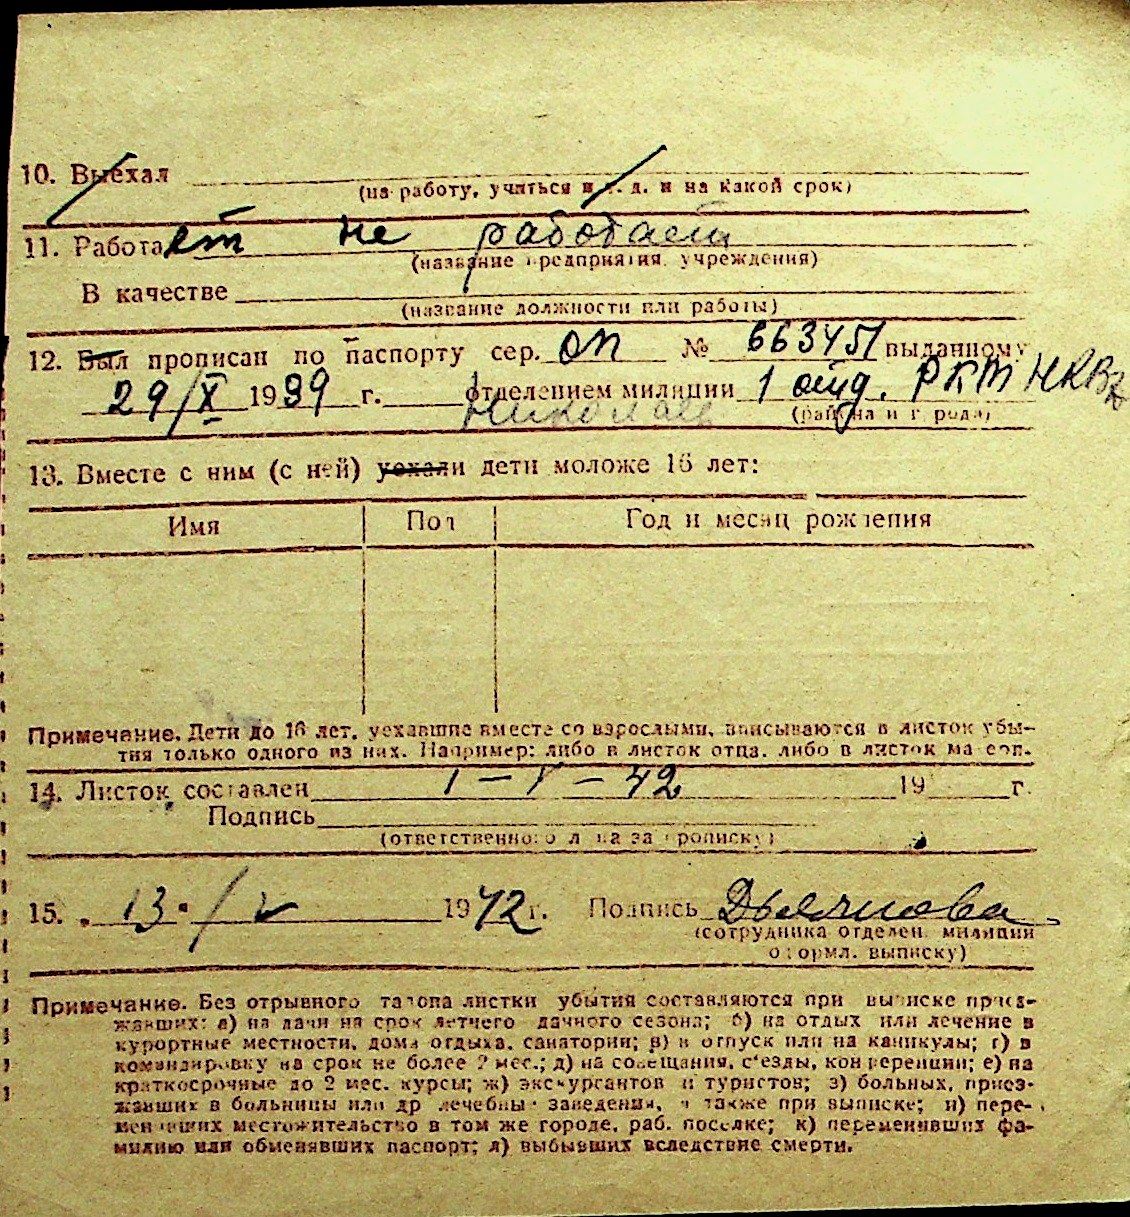 10. Выехал
(на работу, учиться и т. д. и на какой срок)
11. Работает не работает
(название предприятия, учреждения)
В качестве
(название должности или работы)
12. Был прописан по паспорту сер. ОП № 663451 выданному
29/X 1939 г. отделением милиции 1 отд. РКМ НКВД
(района и города)
13. Вместе с ним (с ней) уехали дети моложе 16 лет:
Имя Пол Год и месяц рождения
Примечание. Дети до 16 лет, уехавшие вместе со взрослыми, вписываются в листок убы-
тия только одного из них. Например: либо в листок отца, либо в листок матери.
14. Листок составлен 1 - V - 42 19 г.
Подпись
(ответственного лица за прописку)
15. 13 / V 1942 г. Подпись
(сотрудника отделен. милиции
оформл. выписку)
Примечание. Без отрывного талона листки убытия составляются при выписке приез-
жавших: а) на дачи на срок летнего дачного сезона; б) на отдых или лечение в
курортные местности, дома отдыха, санатории; в) в отпуск или на каникулы; г) в
командировку на срок не более 2 мес.; д) на совещания, с'езды, конференции; е) на
краткосрочные до 2 мес. курсы; ж) экскурсантов и туристов; з) больных, приез-
жавших в больницы или др лечебные заведения, а также при выписке; и) пере-
менивших местожительство в том же городе, раб. поселке; к) переменивших фа-
милию или обменявших паспорт; л) выбывших вследствие смерти.